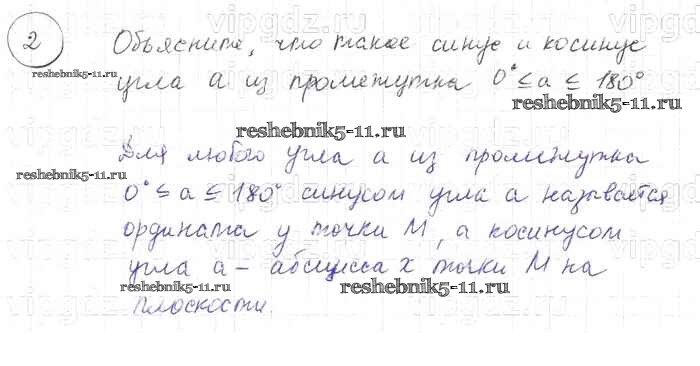 2 Объясните, что такое синус и косинус
reshebnik5-11.ru
угла a из промежутка 0° ≤ a ≤ 180°
reshebnik5-11.ru
reshebnik5-11.ru
Для любого угла a из промежутка
reshebnik5-11.ru
0° ≤ a ≤ 180° синусом угла a называется
ордината y точки M, а косинусом
угла a – абсцисса x точки M на
reshebnik5-11.ru
reshebnik5-11.ru
плоскости.